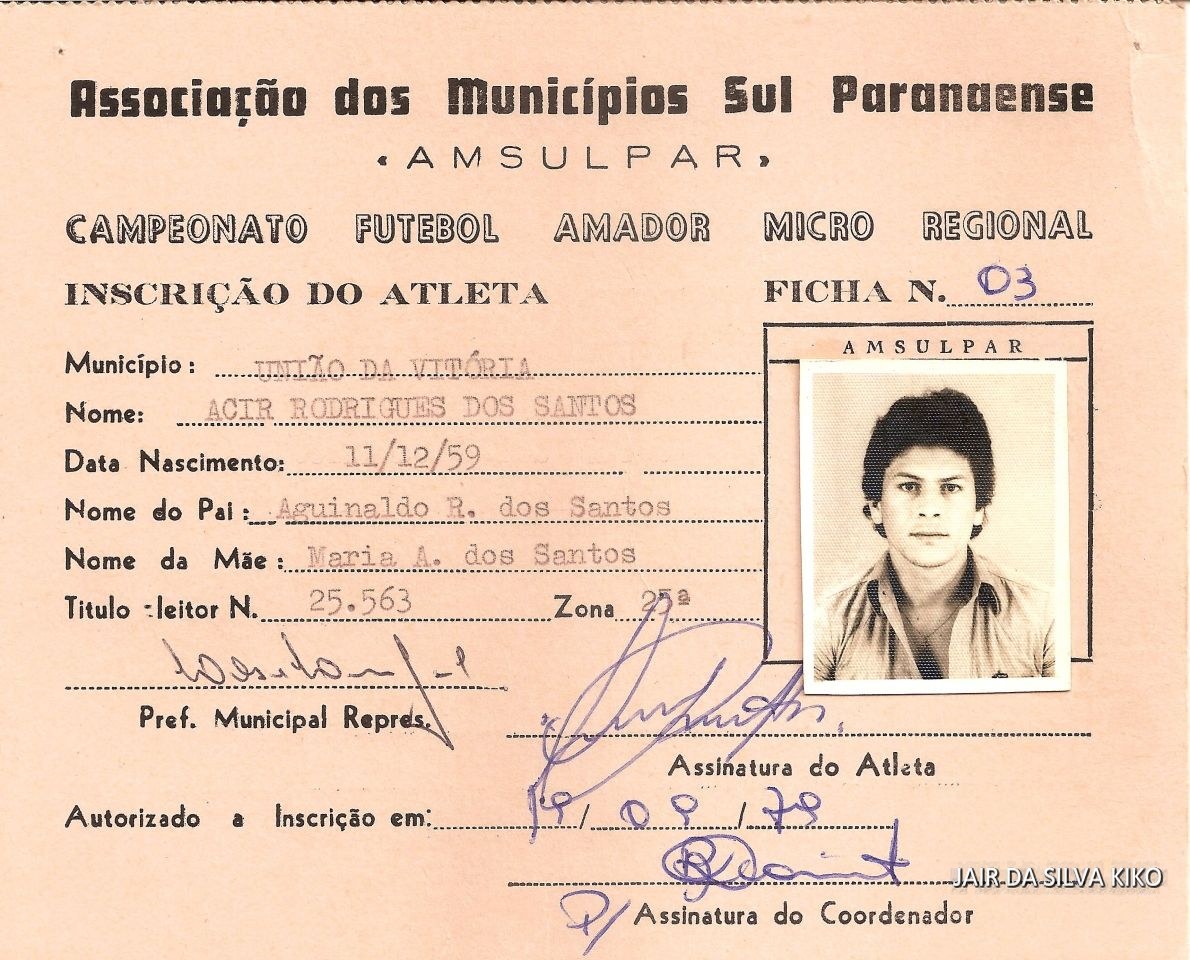 Associação dos Municípios Sul Paranaense
«AMSULPAR»
CAMPEONATO FUTEBOL AMADOR MICRO REGIONAL
INSCRIÇÃO DO ATLETA
FICHA N. 03
AMSULPAR
Município: UNIÃO DA VITÓRIA
Nome: ACIR RODRIGUES DOS SANTOS
Data Nascimento: 11/12/59
Nome do Pai: Aguinaldo R. dos Santos
Nome da Mãe: Maria A. dos Santos
Titulo eleitor N. 25.563 Zona 25ª
Pref. Municipal Repres.
Assinatura do Atleta
Autorizado a Inscrição em: 19/09/79
P/ Assinatura do Coordenador
JAIR DA SILVA KIKO